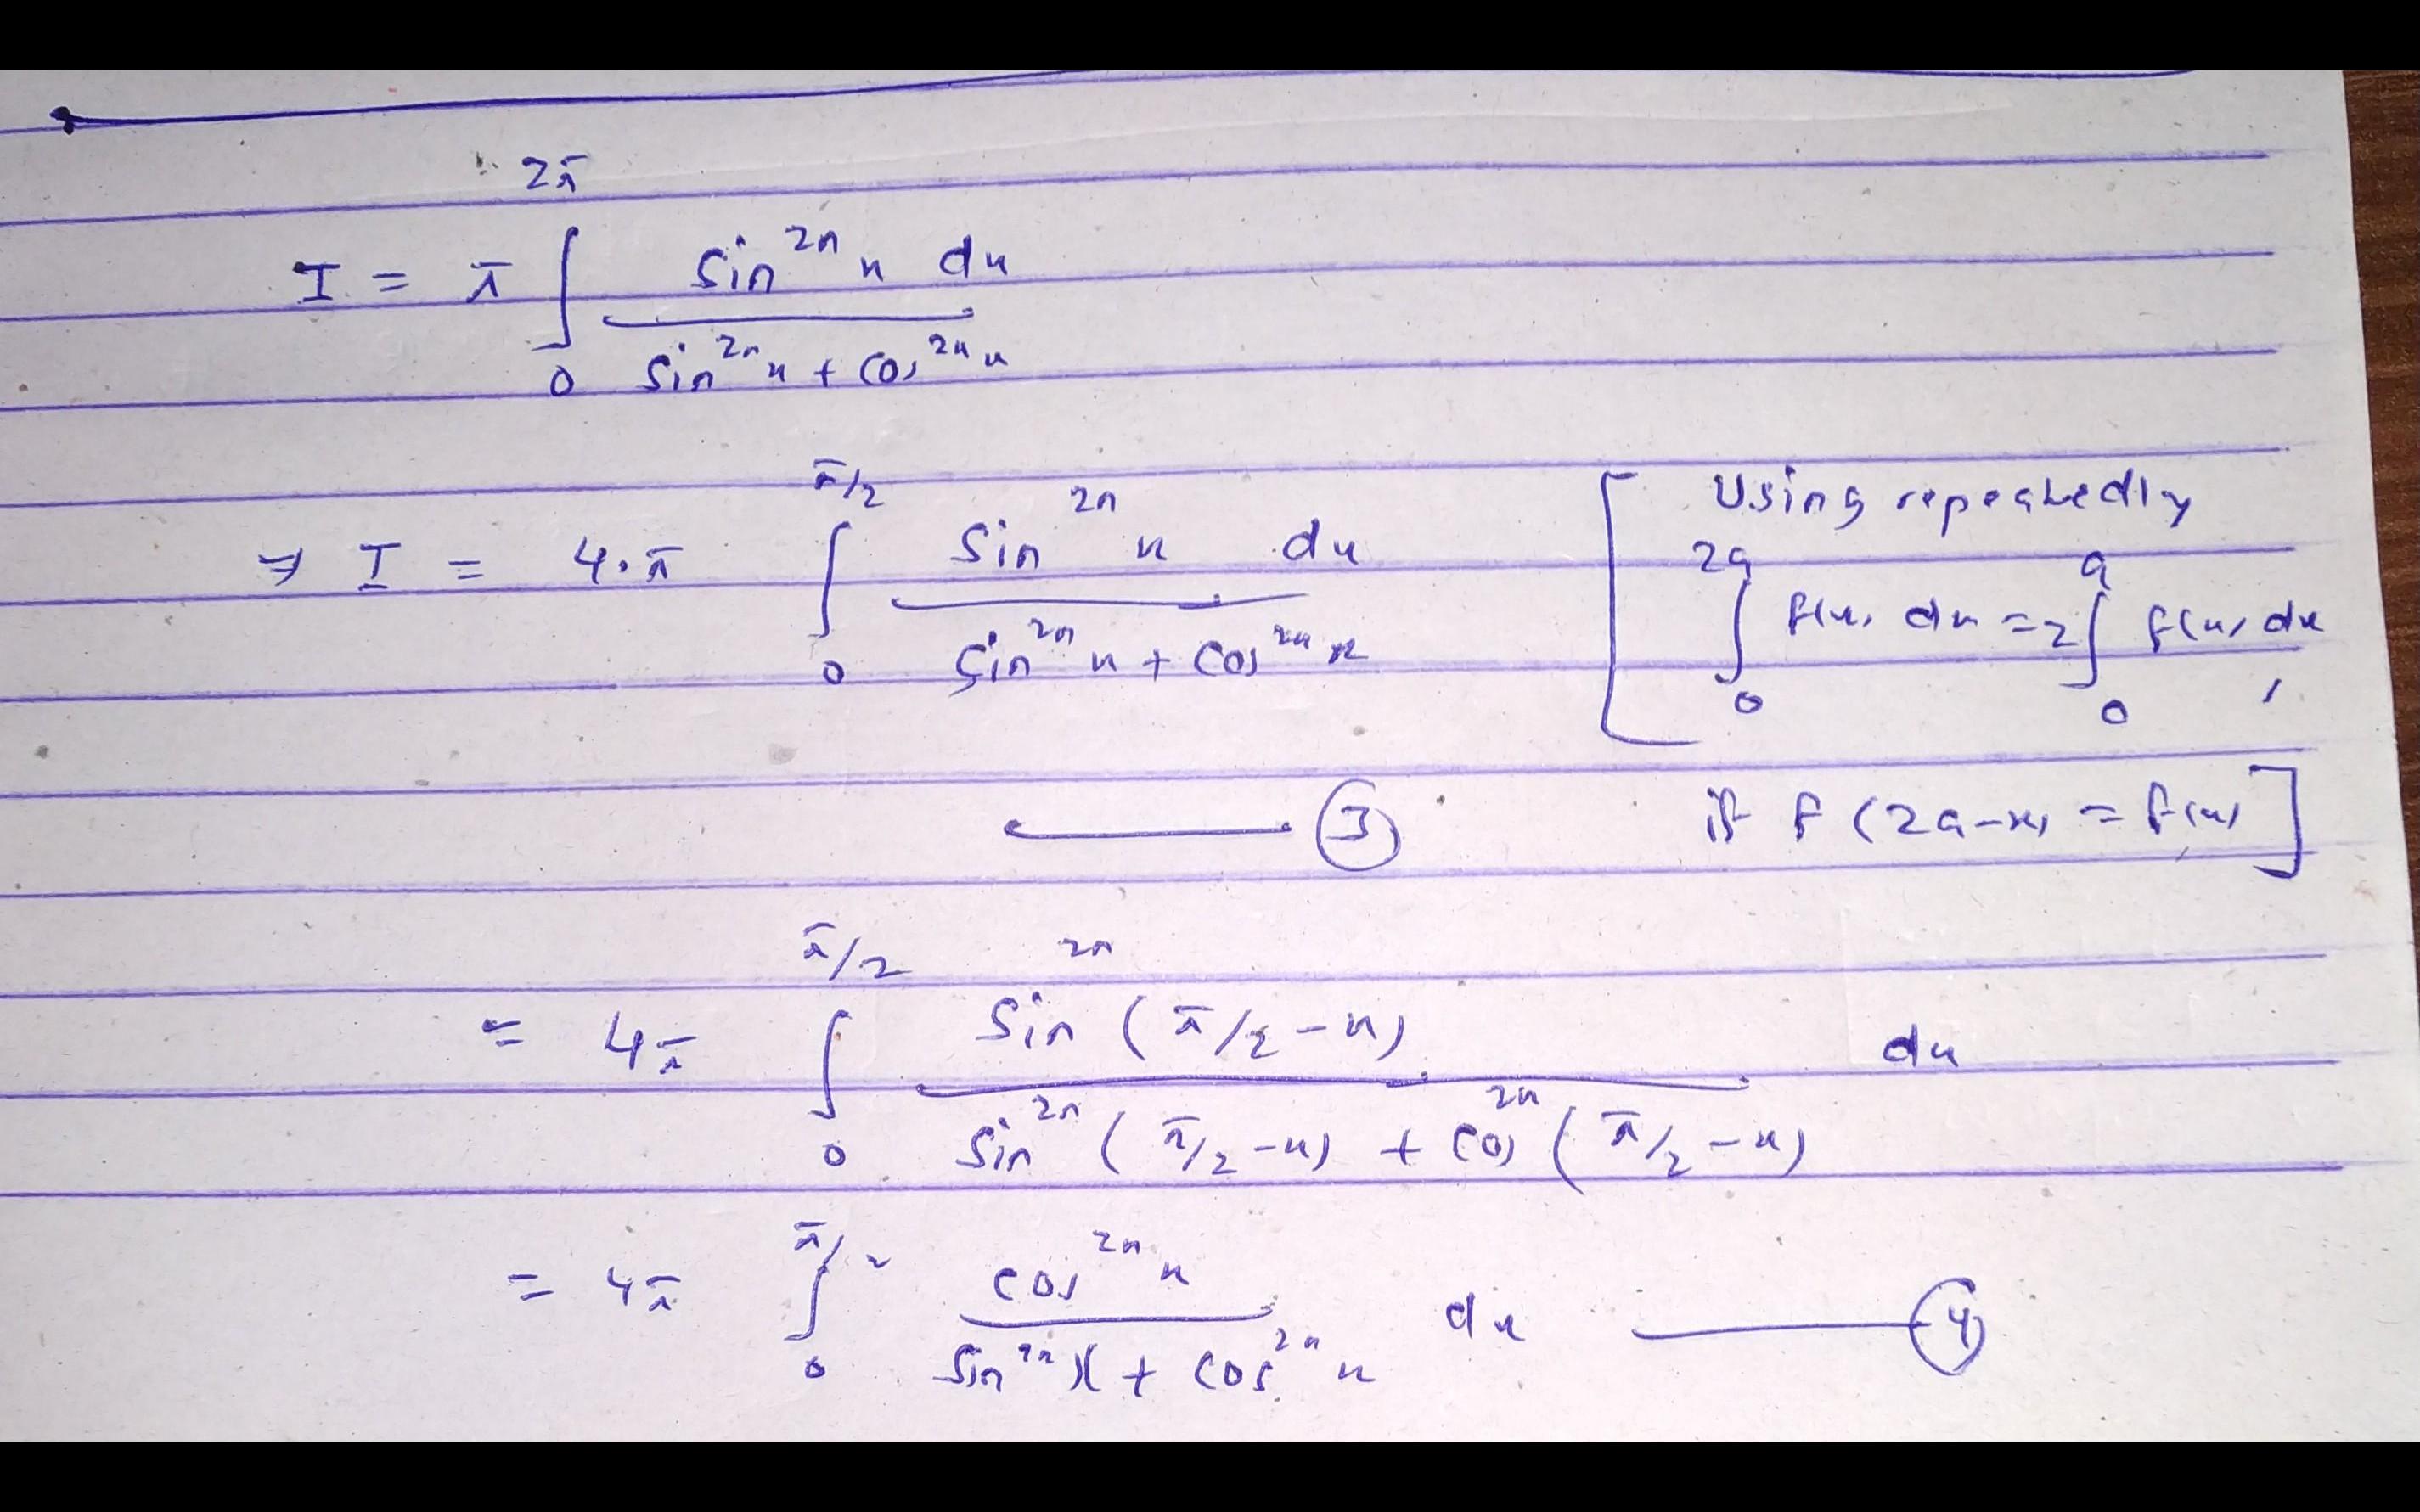 I = π ∫₀^{2π} sin^{2n} x dx / (sin^{2n} x + cos^{2n} x)
⇒ I = 4·π ∫₀^{π/2} sin^{2n} x dx / (sin^{2n} x + cos^{2n} x)
[Using repeatedly
∫₀^{2a} f(x) dx = 2 ∫₀^{a} f(x) dx,
if f(2a-x) = f(x)]
③
= 4π ∫₀^{π/2} sin^{2n} (π/2 - x) / (sin^{2n} (π/2 - x) + cos^{2n} (π/2 - x)) dx
= 4π ∫₀^{π/2} cos^{2n} x / (sin^{2n} x + cos^{2n} x) dx ④